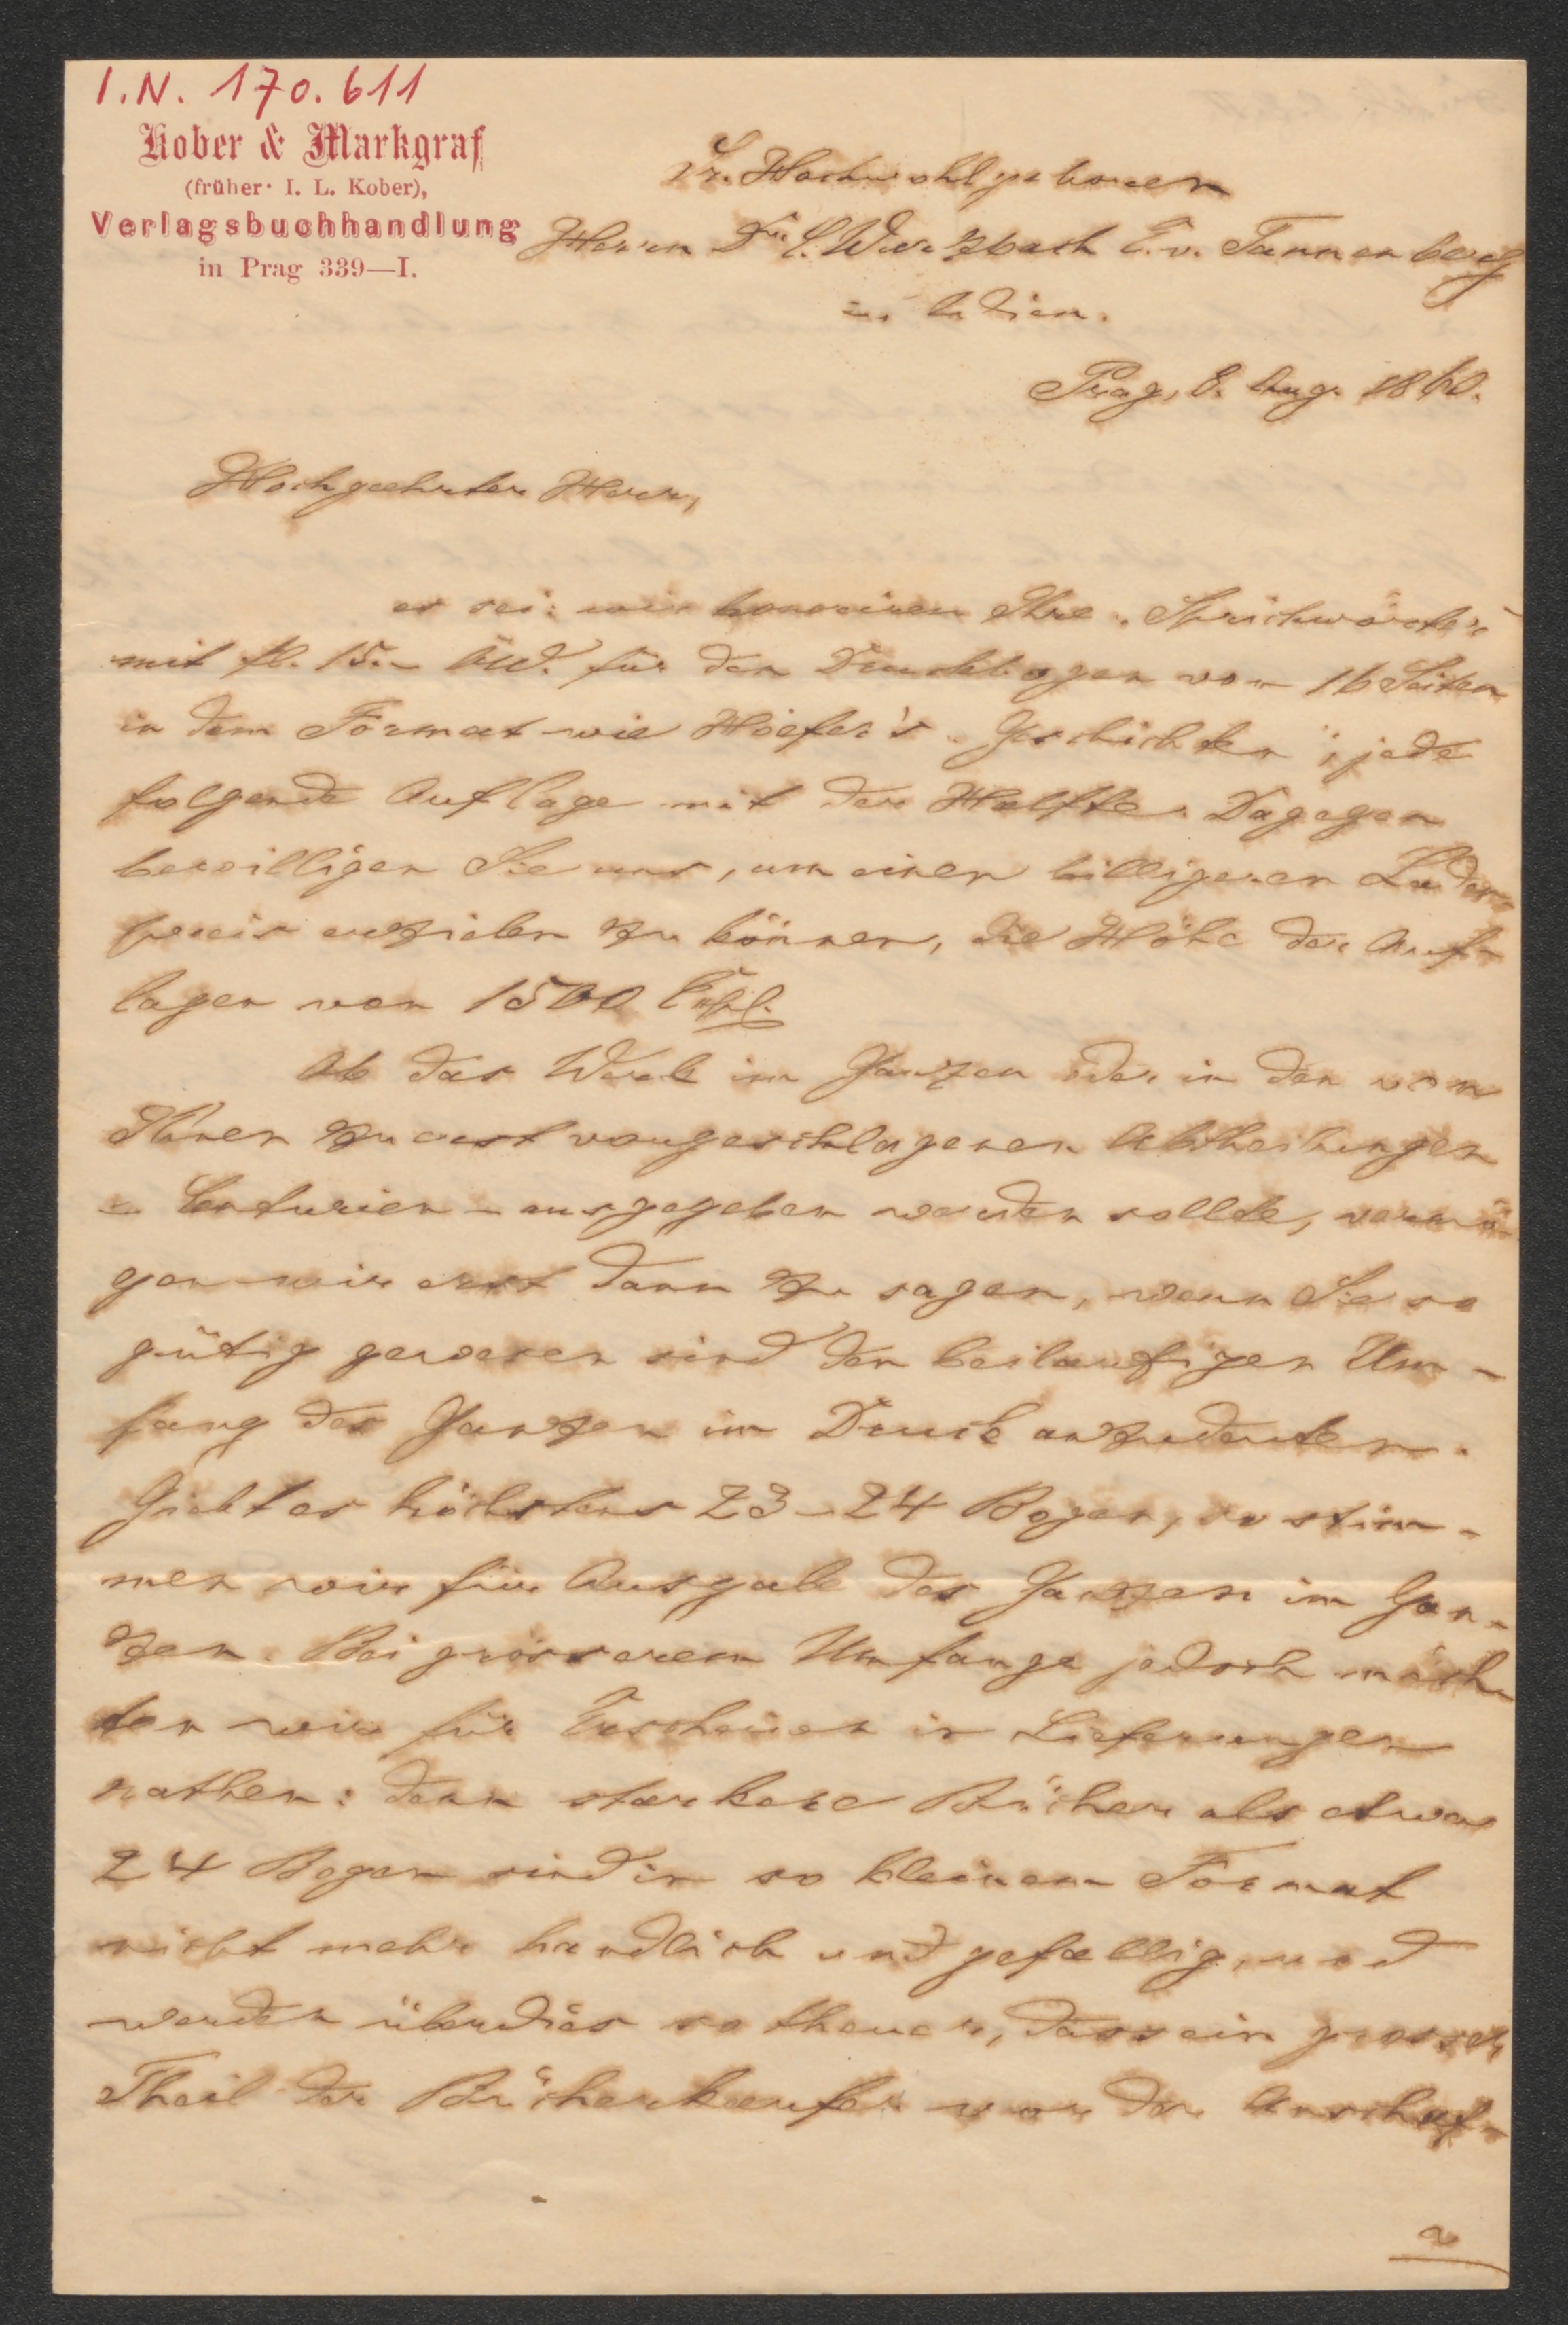 I.N. 170.611
Kober & Markgraf
(früher I. L. Kober),
Verlagsbuchhandlung
in Prag 339—I.
Sr. Hochwohlgeboren
Herrn Dr. C. Wurzbach E. v. Tannenberg
in Wien.
Prag, 8. Aug. 1860.
Hochgeehrter Herr,
es sei: wir honoriren Ihre „Sprichwörter"
mit fl. 15.- ÖW. für den Druckbogen von 16 Seiten
in dem Format wie Hoefer's „Geschichten"; jede
folgende Auflage mit der Haelfte. Dagegen
bewilligen Sie uns, um einen billigeren Laden-
preis erzielen zu können, die Höhe der Auf-
lagen von 1500 Expl.
Ob das Werk im Ganzen oder in den von
Ihnen zuerst vorgeschlagenen Abtheilungen
- Centurien - ausgegeben werden sollte, vermö-
gen wir erst dann zu sagen, wenn Sie so
gütig gewesen sind den beilaeufigen Um-
fang des Ganzen im Druck anzudeuten.
Giebt es höchstens 23-24 Bogen, so stim-
men wir für Ausgabe des Ganzen im Gan-
zen. Bei grösserem Umfange jedoch möch-
ten wir für Erscheinen in Lieferungen
rathen: denn staerkere Bücher als etwa
24 Bogen sind in so kleinem Format
nicht mehr handlich und gefaellig, und
werden überdies so theuer, dass ein grosser
Theil der Bücherkaeufer vor der Anschaf-